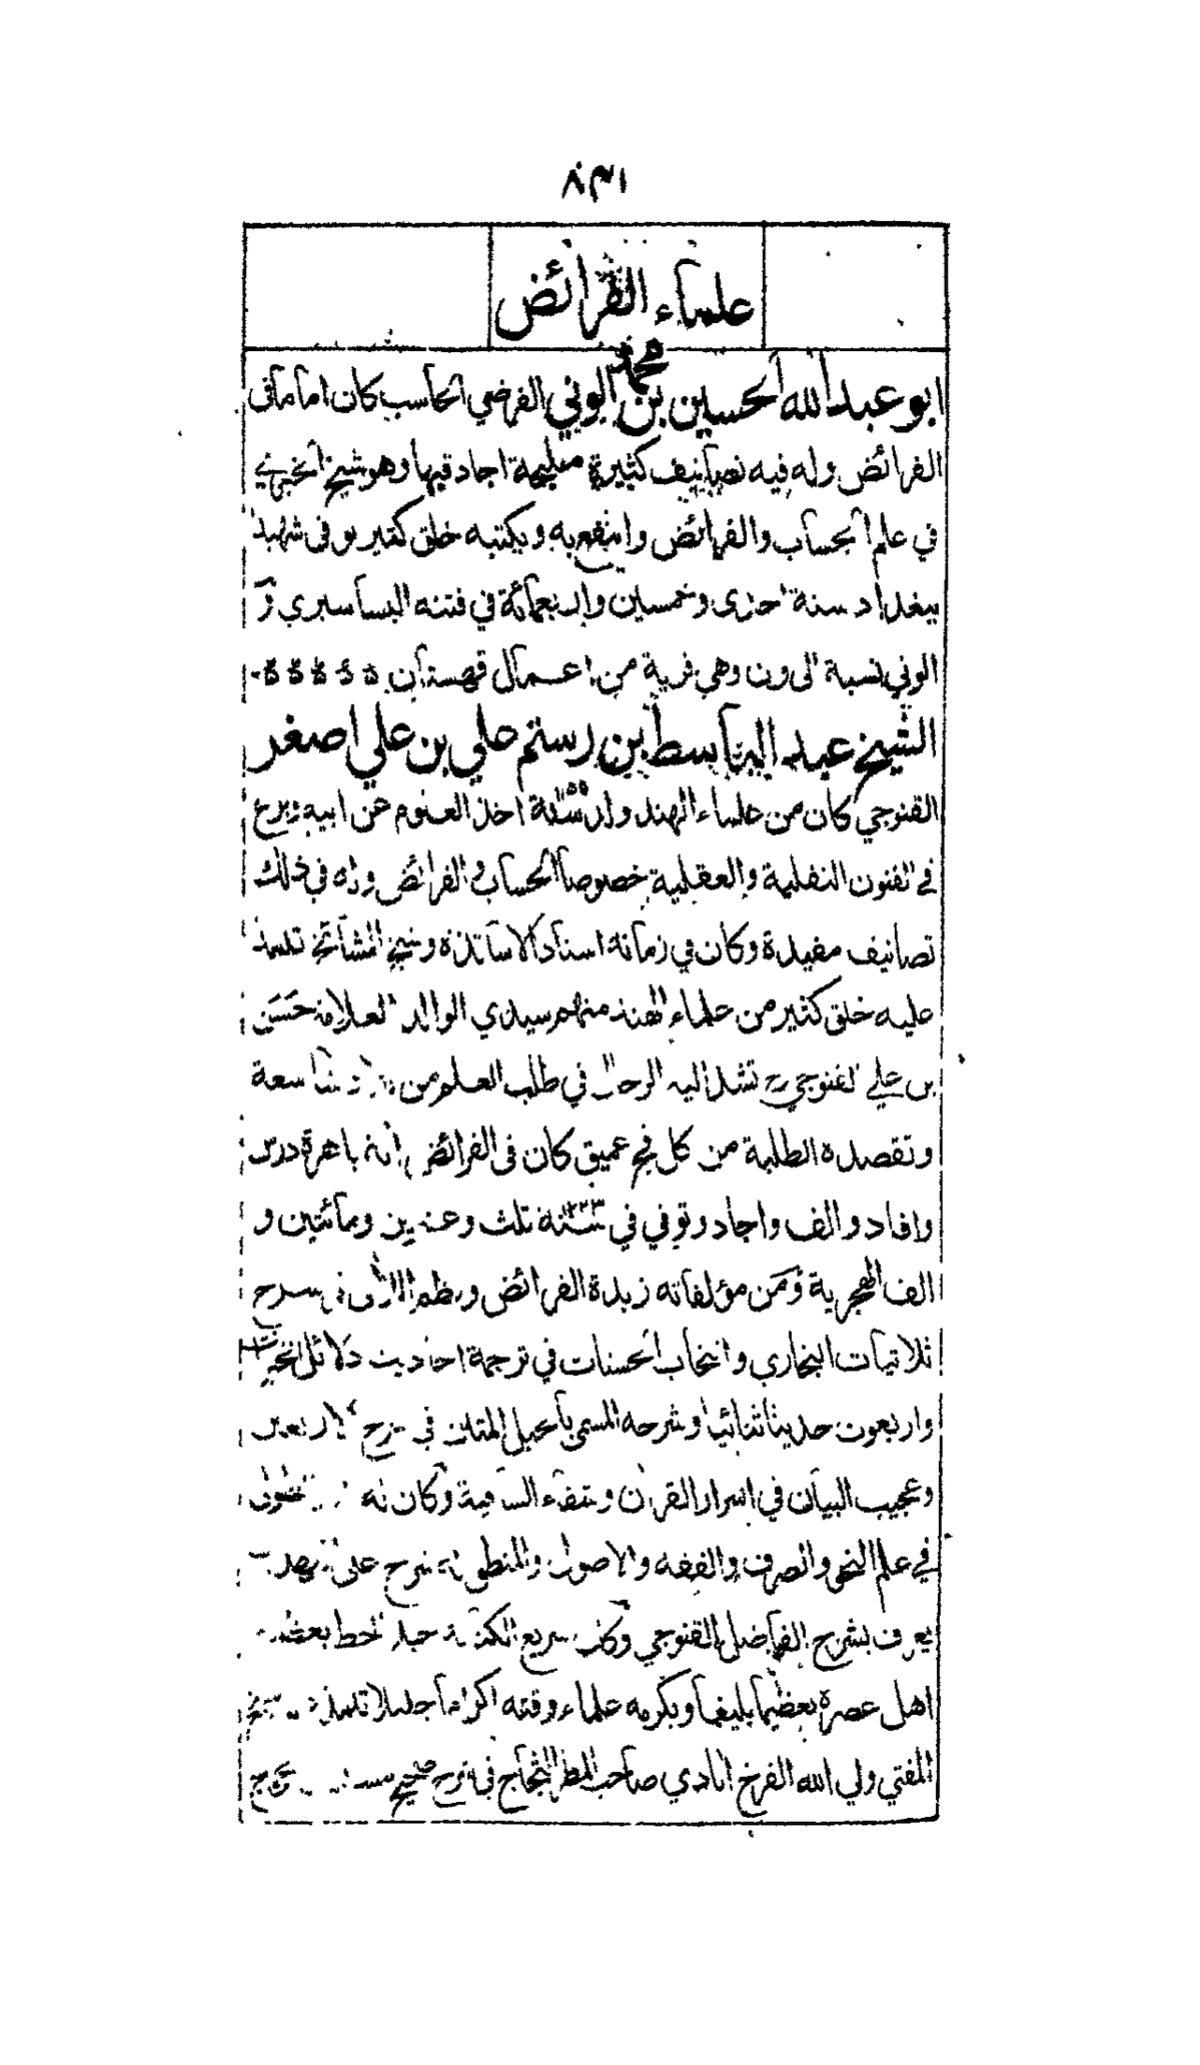 ٨٣١
علماء الفرائض
ابو عبد الله الحسين بن محمد الوني الفرضي الحاسب كان اماما في
الفرائض وله فيه تصانيف كثيرة مليحة اجاد فيها وهو شيخ الخبري
في علم الحساب والفرائض وانتفع به وبكتبه خلق كثير توفى شهيدا
ببغداد سنة احدى وخمسين واربعمائة في فتنة البساسيري و
الوني نسبة الى ون وهي قرية من اعمال قهستان
الشيخ عبد الباسط بن رستم علي بن علي اصغر
القنوجي كان من علماء الهند ولد سنة اخذ العلوم عن ابيه وبرع
في الفنون النقلية والعقلية خصوصا الحساب والفرائض وله في ذلك
تصانيف مفيدة وكان في زمانه استاد الاساتذة وشيخ المشائخ تلمذ
عليه خلق كثير من علماء الهند منهم سيدي الوالد العلامة حسن
بن علي القنوجي رح تشد اليه الرحال في طلب العلم من شاسعة
وتقصده الطلبة من كل فج عميق كان في الفرائض باهرة درس
وافاد والف واجاد وتوفي في ١٢٢٣ سنة ثلث وعشرين ومائتين و
الف الهجرية ومن مؤلفاته زبدة الفرائض ونظم اللآلي في شرح
ثلاثيات البخاري وانتخاب الحسنات في ترجمة احاديث دلائل الخيرات
واربعون حديثا ثنائيا وشرحه المسمى بالحبل المتين في شرح الاربعين
وعجيب البيان في اسرار القران وشفاء الشافية وكان له
في علم النحو والصرف والفقه والاصول والمنطق شرح على تهذيب
يعرف بشرح الفاضل القنوجي وكان سريع الكتابة جيد الخط يعظمه
اهل عصره تعظيما بليغا ويكرمه علماء وقته اكراما جليلا تلمذ
المفتي ولي الله الفرخ ابادي صاحب المطر الثجاج في شرح صحيح مسلم